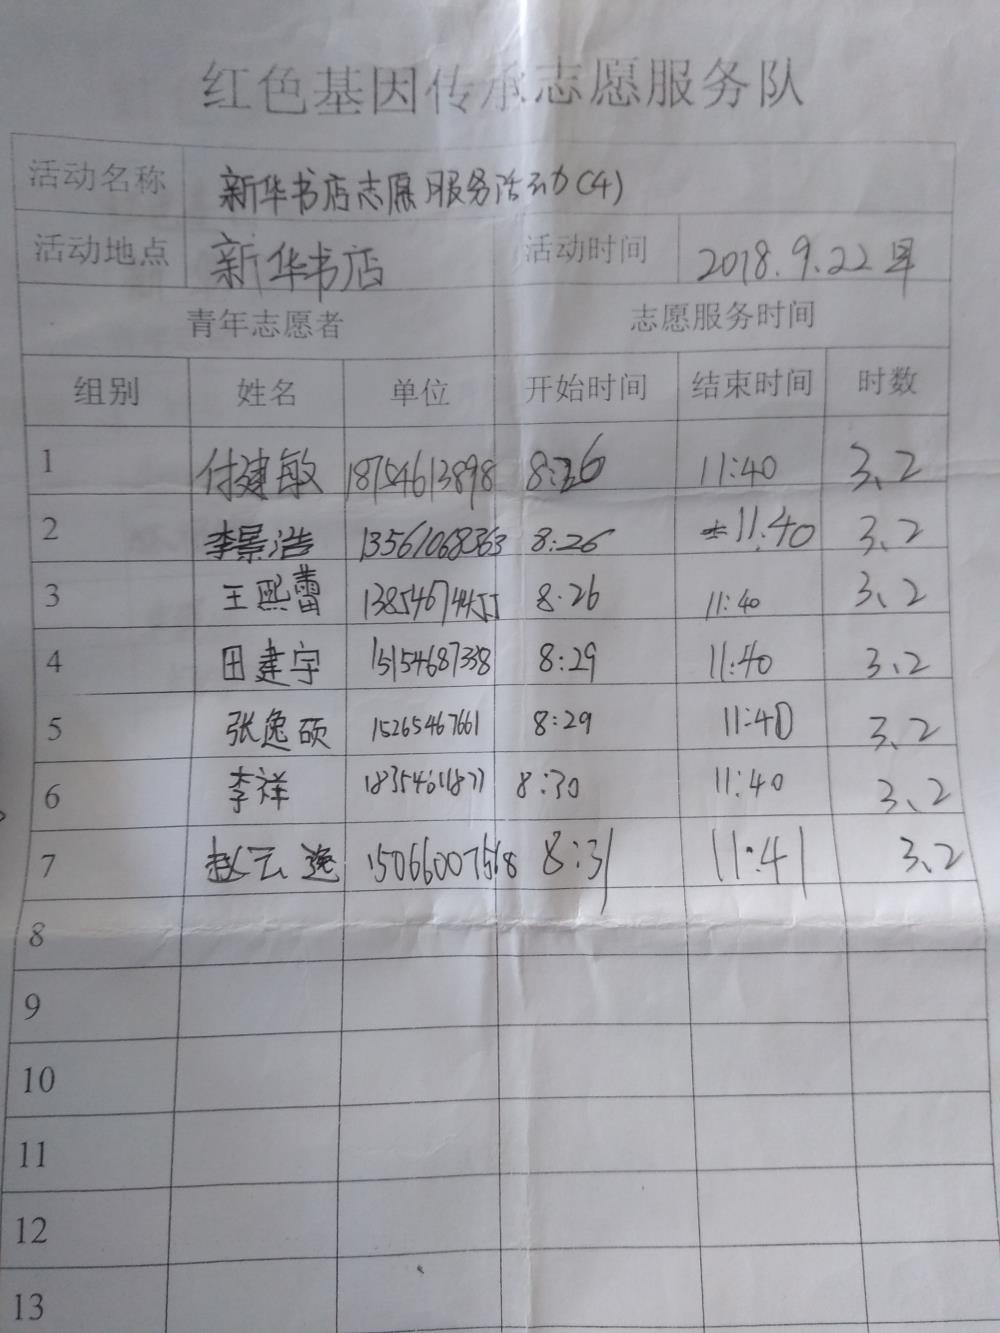 红色基因传承志愿服务队
活动名称 新华书店志愿服务活动(4)
活动地点 新华书店 活动时间 2018.9.22 早
青年志愿者 志愿服务时间
组别 姓名 单位 开始时间 结束时间 时数
1 付建敏 18754613898 8:26 11:40 3、2
2 李景浩 13561068363 8:26 11:40 3、2
3 王熙蕾 13854674455 8:26 11:40 3、2
4 田建宇 15154687338 8:29 11:40 3、2
5 张逸硕 15265467661 8:29 11:40 3、2
6 李祥 18354611877 8:30 11:40 3、2
7 赵云逸 15066007568 8:31 11:41 3、2
8
9
10
11
12
13